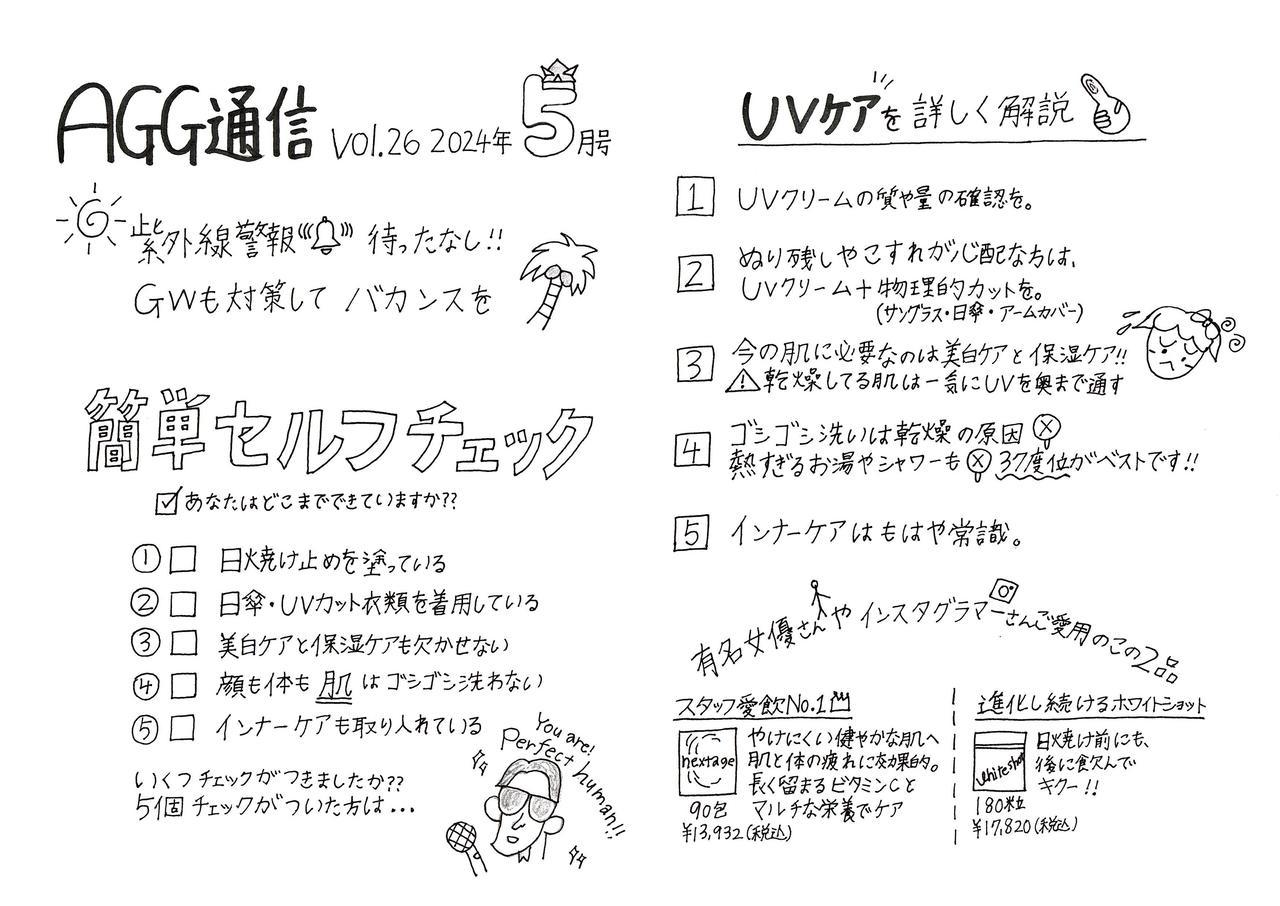 AGG通信 VOl.26 2024年 5月号
紫外線警報 待ったなし!!
GWも対策して バカンスを
簡単セルフチェック
あなたはどこまでできていますか??
① □ 日焼け止めを塗っている
② □ 日傘・UVカット衣類を着用している
③ □ 美白ケアと保湿ケアも欠かせない
④ □ 顔も体も 肌 は ゴシゴシ洗わない
⑤ □ インナーケアも取り入れている
いくつチェックがつきましたか??
5個 チェックがついた方は...
You are!
Perfect human!!
UVケアを詳しく解説
1 UVクリームの質や量の確認を。
2 ぬり残しやこすれが心配な方は、
UVクリーム+物理的カットを。
(サングラス・日傘・アームカバー)
3 今の肌に必要なのは美白ケアと保湿ケア!!
⚠乾燥してる肌は一気にUVを奥まで通す
4 ゴシゴシ洗いは乾燥の原因 ⓧ
熱すぎるお湯やシャワーも ⓧ 37度位がベストです!!
5 インナーケアはもはや常識。
有名女優さんや インスタグラマーさんご愛用のこの2品
スタッフ愛飲No.1
nextage
やけにくい健やかな肌へ
肌と体の疲れに効果的。
長く留まるビタミンCと
マルチな栄養でケア
90包
¥13,932(税込)
進化し続けるホワイトショット
whiteshot
日焼け前にも、
後に飲んで
キクー!!
180粒
¥17,820(税込)